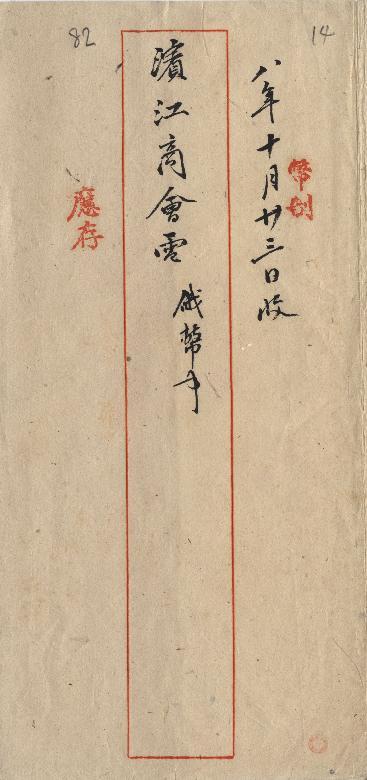 14
幣制
八年十月廿三日收
濱江商會電
俄幣事
應存
82